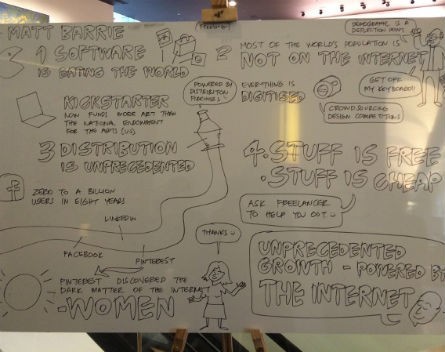 MATT BARRIE
1 SOFTWARE
IS EATING THE WORLD
KICKSTARTER
NOW FUNDS MORE ART THAN
THE NATIONAL ENDOWMENT
FOR THE ARTS (US)
POWERED BY
DISTRIBUTION
3 DISTRIBUTION
IS UNPRECEDENTED
f
ZERO TO A BILLION
USERS IN EIGHT YEARS
LINKEDIN
FACEBOOK
PINTEREST
PINTEREST DISCOVERED THE
DARK MATTER OF THE INTERNET
-WOMEN
THANKS
2
MOST OF THE WORLD'S POPULATION IS
NOT ON THE INTERNET
DEMOGRAPHIC IS A
GET OFF
MY KEYBOARD!
EVERYTHING IS
DIGITISED
CROWDSOURCING
DESIGN COMPETITIONS
4. STUFF IS FREE
. STUFF IS CHEAP
ASK FREELANCER
TO HELP YOU OUT
UNPRECEDENTED
GROWTH - POWERED BY
THE INTERNET